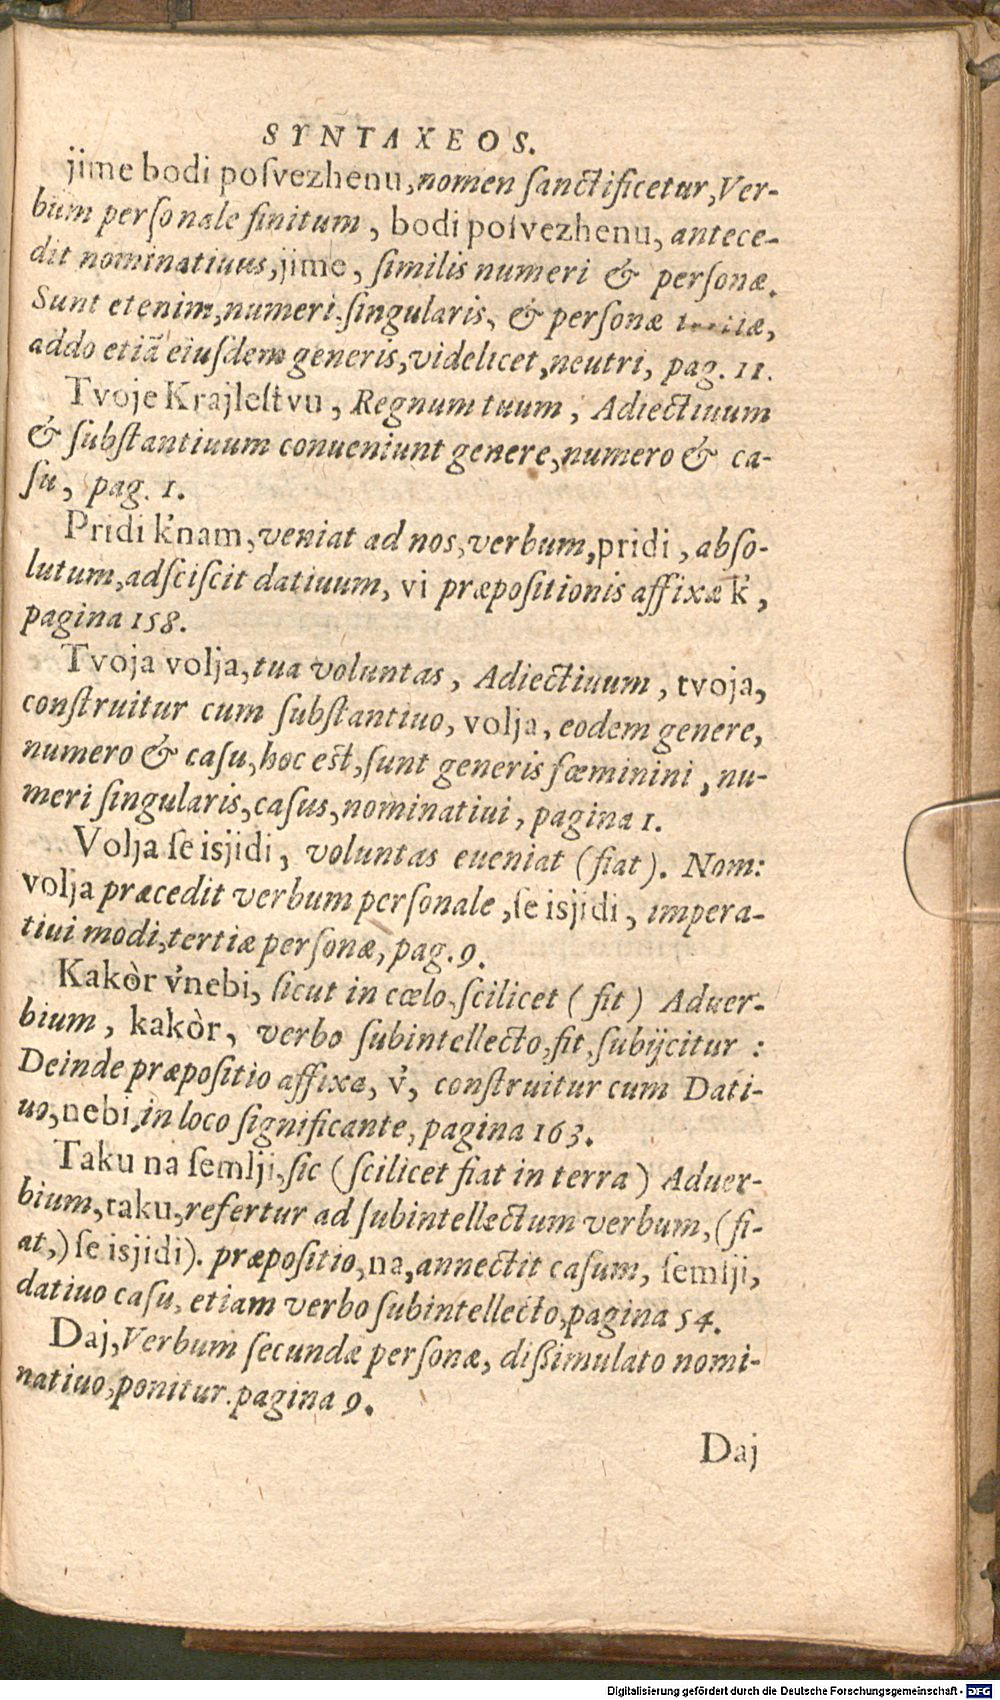 SYNTAXEOS.
jime bodi poſvezhenu, nomen ſanctificetur, Ver-
bum perſonale finitum, bodi poſvezhenu, antece-
dit nominatiuus, jime, ſimilis numeri & perſonæ.
Sunt etenim, numeri ſingularis, & perſonæ
addo etiã eiuſdem generis, videlicet, neutri, pag. 11.
Tvoje Krajleſtvu, Regnum tuum, Adiectiuum
& ſubſtantiuum conueniunt genere, numero & ca-
ſu, pag. 1.
Pridi k'nam, veniat ad nos, verbum, pridi, abſo-
lutum, adſciſcit datiuum, vi præpoſitionis affixæ k',
pagina 158.
Tvoja volja, tua voluntas, Adiectiuum, tvoja,
conſtruitur cum ſubſtantiuo, volja, eodem genere,
numero & caſu, hoc eſt, ſunt generis fœminini, nu-
meri ſingularis, caſus, nominatiui, pagina 1.
Volja ſe isjidi, voluntas eueniat (fiat). Nom:
volja præcedit verbum perſonale, ſe isjidi, impera-
tiui modi, tertiæ perſonæ, pag. 9.
Kakòr v'nebi, ſicut in cœlo, ſcilicet (fit) Aduer-
bium, kakòr, verbo ſubintellecto, fit, ſubijcitur :
Deinde præpoſitio affixa, v', conſtruitur cum Dati-
uo, nebi, in loco ſignificante, pagina 163.
Taku na ſemlji, ſic (ſcilicet fiat in terra) Aduer-
bium, taku, refertur ad ſubintellectum verbum, (fi-
at,) ſe isjidi). præpoſitio, na, annectit caſum, ſemlji,
datiuo caſu, etiam verbo ſubintellecto, pagina 54.
Daj, Verbum ſecundæ perſonæ, diſſimulato nomi-
natiuo, ponitur. pagina 9.
Daj
Digitalisierung gefördert durch die Deutsche Forschungsgemeinschaft - DFG